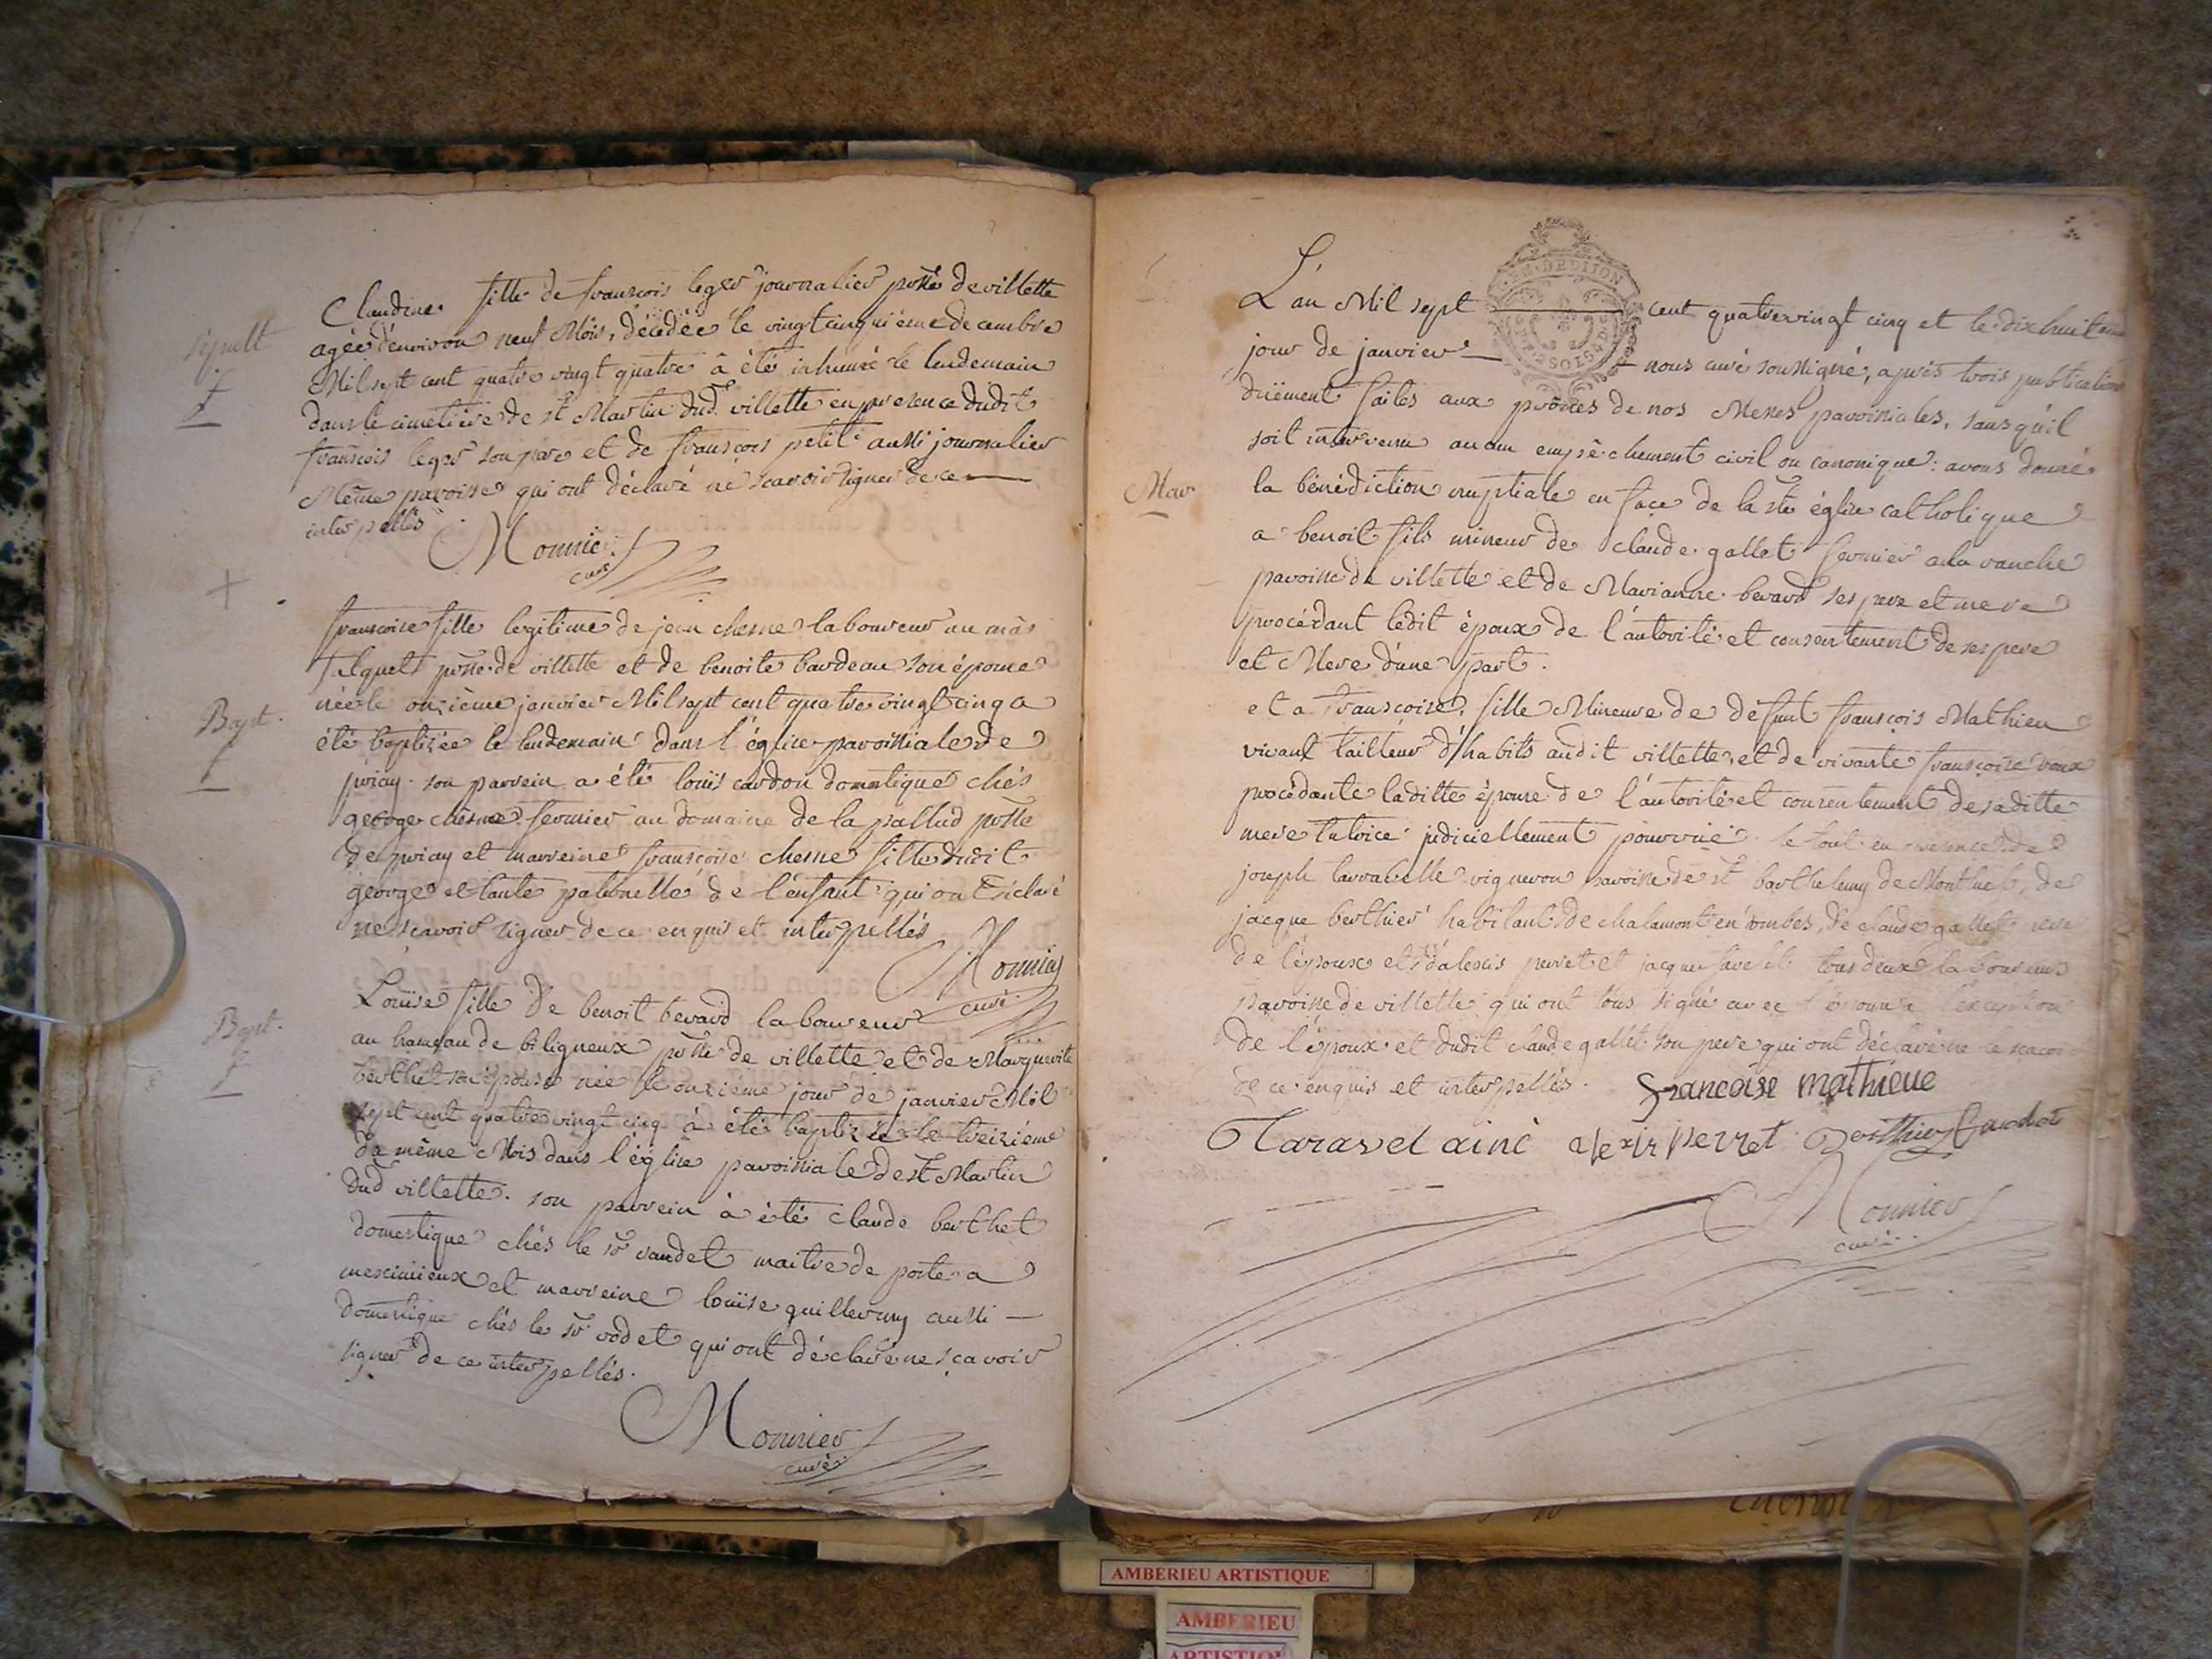 sépult
f
Claudine fille de francois leger journalier psse de villette
agée d'environ neuf Mois, décédée le vingt cinquieme decembre
Mil sept cent quatre vingt quatre â été inhumé le lendemain
dans le cimetiere de st Martin dud. villette en presence dudit
francois leger son pere et de francois petit aussi journalier
Même paroisse qui ont déclaré ne scavoir signer de ce
interpellés
Monnier
curé
Bapt.
f
francoise fille legitime de jean chesne laboureur au mâs
falquet psse de villette et de benoite bardeau son épouse
née le onzième janvier Mil sept cent quatre vingt cinq a
été baptizée le lendemain dans l'église paroissiale de
priay. son parrein a été louis cardon domestique chés
george chesne fermier au domaine de la pallud psse
de priay et marreine francoise chesne fille dudit
george et tante paternelle de l'enfant qui ont déclaré
ne scavoir signer de ce enquis et interpellés
Monnier
curé
Bapt.
f
Loüise fille de benoit berard laboureur
au hameau de biligneux psse de villette et de Marguerite
berthet son épouse née le onzième jour de janvier Mil
sept cent quatre vingt cinq â été baptizée le treizième
du même Mois dans l'église paroissiale de st Martin
dud villette. son parrein â été claude berthet
domestique chés le sr vaudet maitre de poste a
meximieux et marreine loüise guillermy aussi
domestique chés le sr vodet qui ont déclaré ne scavoir
signer de ce interpellés.
Monnier
curé
L'an Mil sept cent quatrevingt cinq et le dix huitieme
jour de janvier nous curé soussigné, après trois publications
düement faites aux prônes de nos Messes paroissiales, sans qu'il
soit intervenu aucun empêchement civil ou canonique: avons donné
Mar
la bénédiction nuptiale en face de la ste église catholique
a benoit fils mineur de claude gallet fermier a la ranche
paroisse de villette et de Marianne berard ses pere et mere
procédant ledit époux de l'autorité et consentement de ses pere
et Mere d'une part.
et a francoise fille Mineure de défunt francois Mathieu
vivant tailleur d'habits audit villette, et de vivante francoise roux
procédante laditte épouse de l'autorité et consentement de saditte
mere tutrice judiciellement pourvue. le tout en presence de
joseph tarravelle vigneron paroisse de st barthelemy de Montluel, de
jacque berthier habitant de chalamont en Dombes, de claude gallet pere
de l'époux et d'alexis perret et jacque tous deux laboureurs
paroisse de villette qui ont tous signé avec l'épouse a l'exception
de l'époux et dudit claude gallet son pere qui ont déclaré ne le scavoir
de ce enquis et interpellés. francoise mathieue
Taravel ainé alexis perret Berthier
Monnier
curé
AMBERIEU ARTISTIQUE
AMBERIEU
ARTISTIQUE